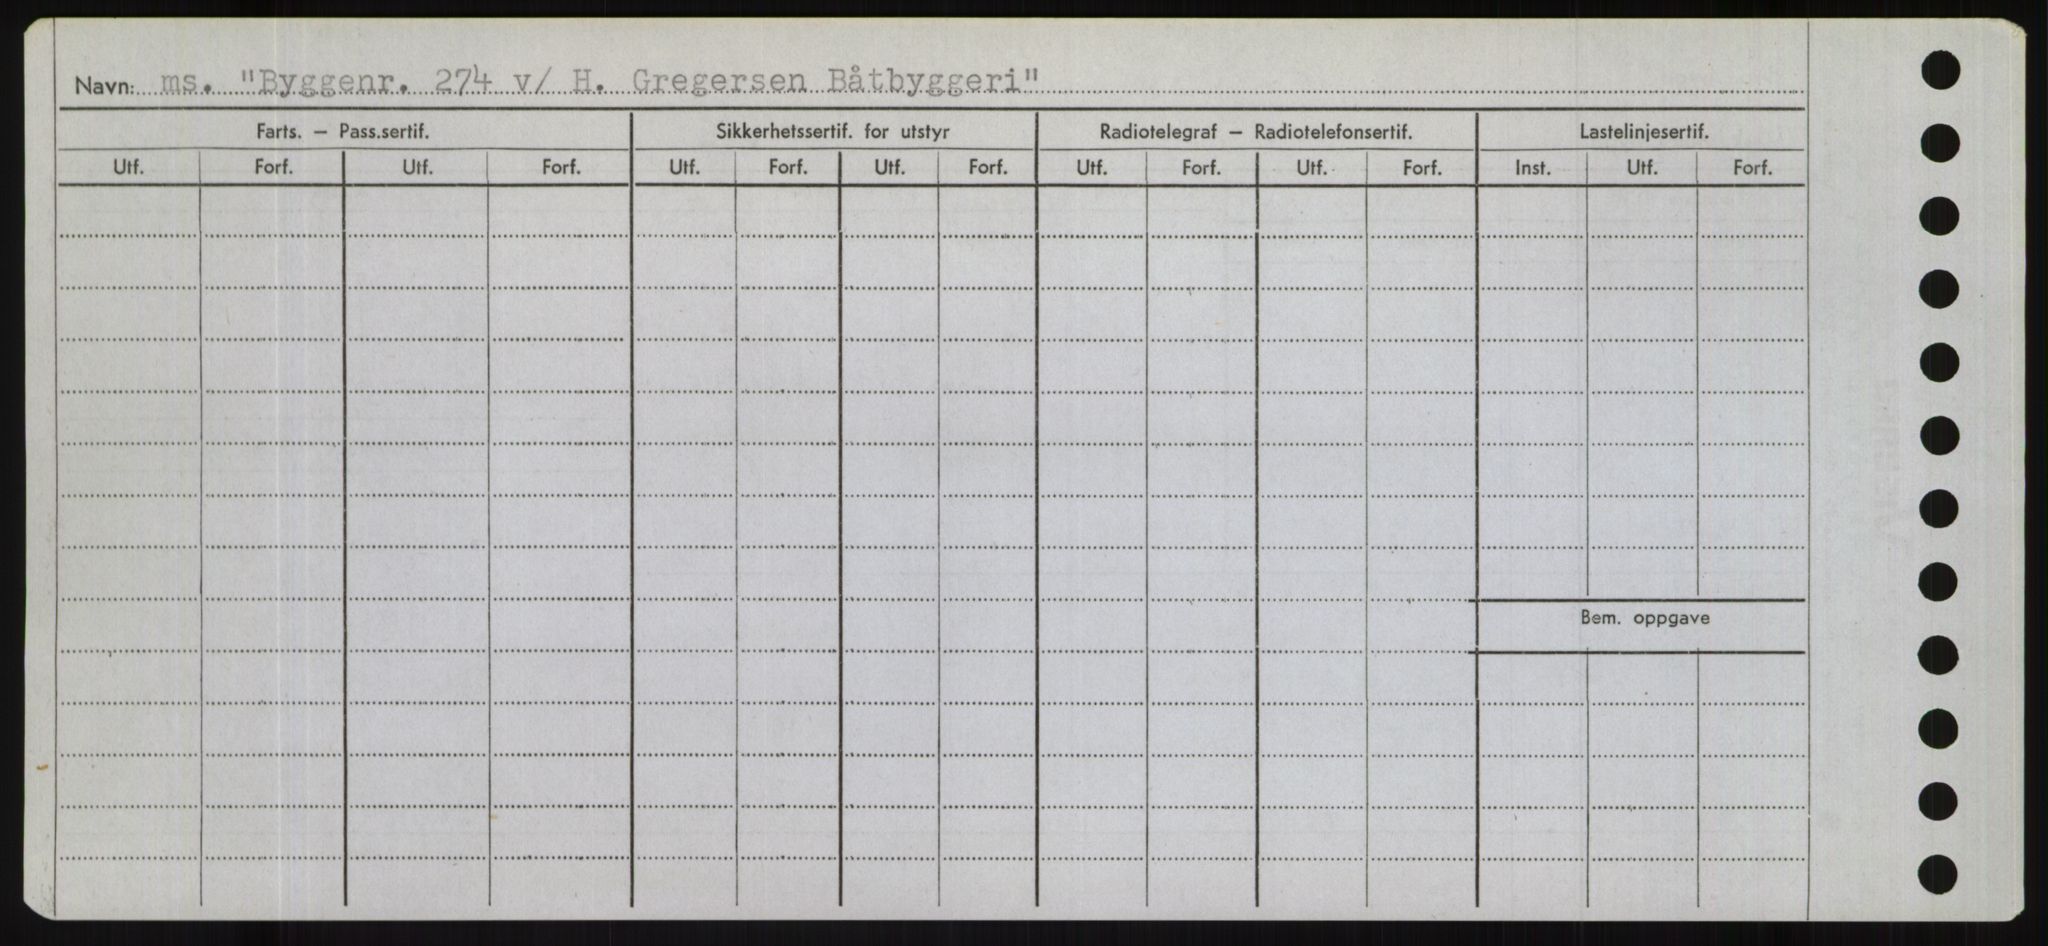 Navn: ms. "Byggenr. 274 v/ H. Gregersen Båtbyggeri"
Farts. — Pass.sertif. Sikkerhetssertif. for utstyr Radiotelegraf — Radiotelefonsertif. Lastelinjesertif.
Utf. Forf. Utf. Forf. Utf. Forf. Utf. Forf. Utf. Forf. Utf. Forf. Inst. Utf. Forf.
Bem. oppgave